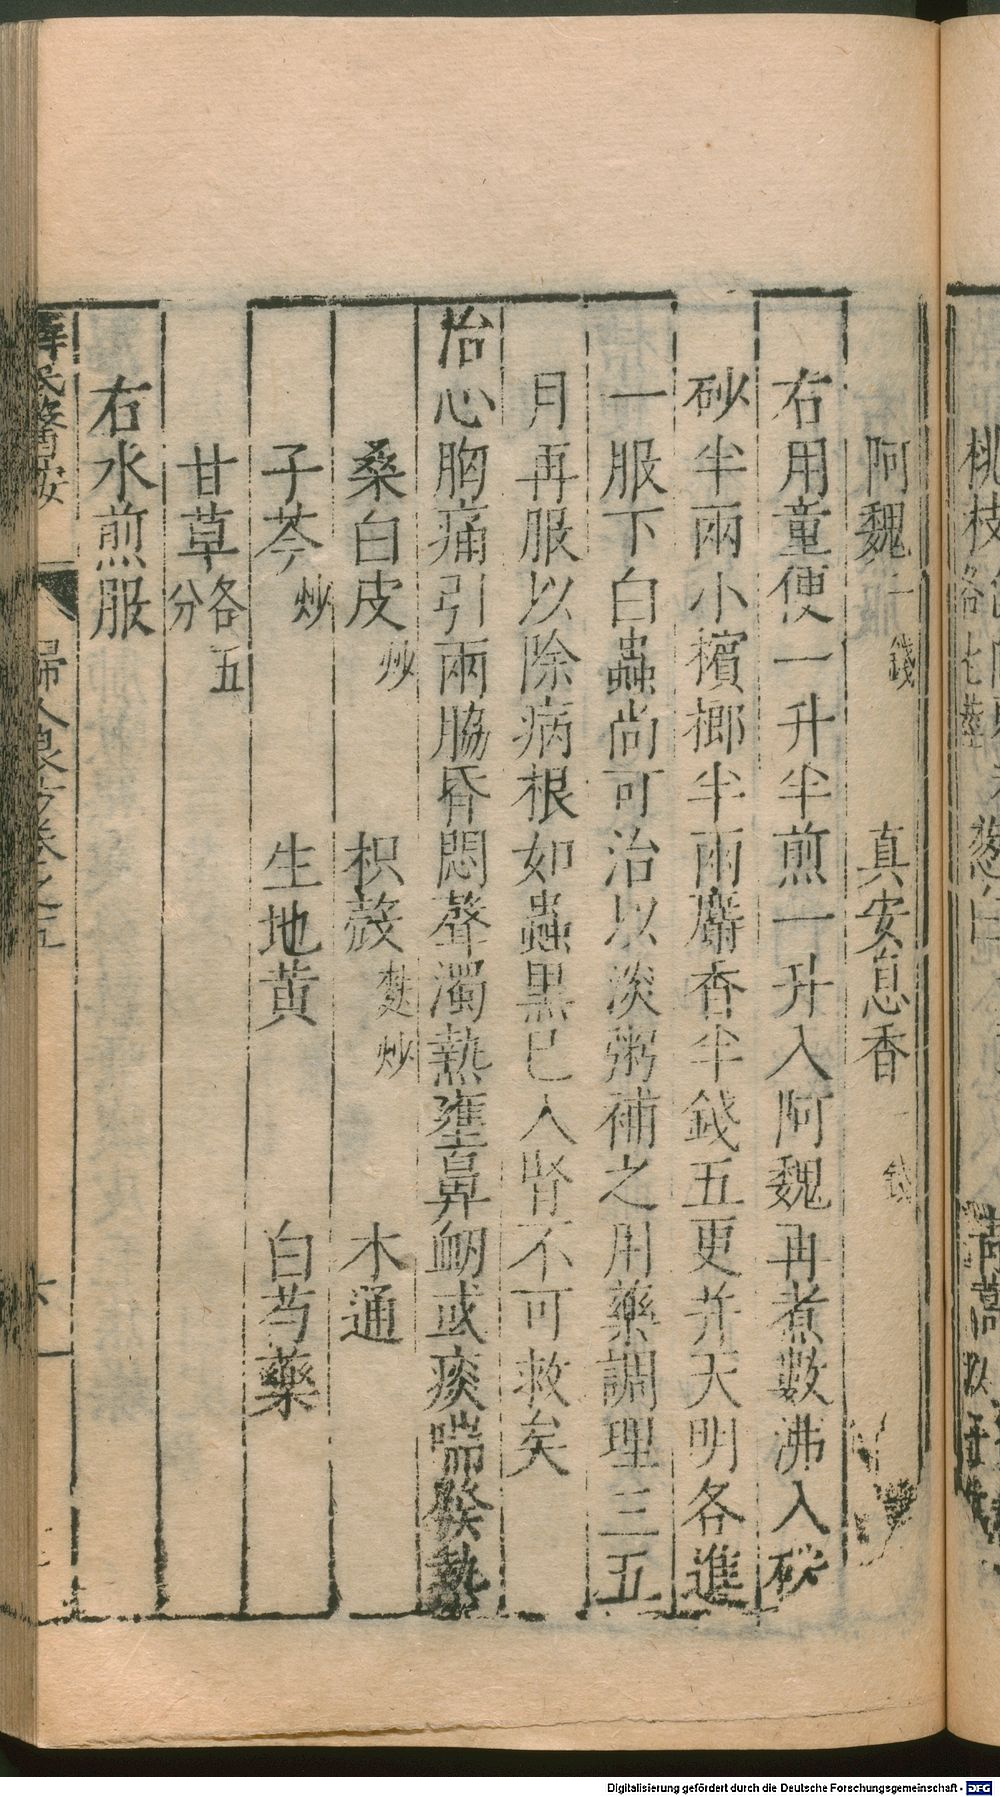 桃枝
各七莖
葱白
阿魏一錢　真安息香一錢
右用童便一升半煎一升入阿魏再煮數沸入硃
砂半兩小檳榔半兩麝香半錢五更并天明各進
一服下白蟲尚可治以淡粥補之用藥調理三五
月再服以除病根如蟲黒已入腎不可救矣
治心胸痛引兩脇昏悶聲濁熱壅鼻衄或痰喘發熱
桑白皮炒　枳殻麩炒　木通
子芩炒　生地黄　白芍藥
甘草各五分
右水煎服
薛氏醫按　婦人良方卷之五　六
Digitalisierung gefördert durch die Deutsche Forschungsgemeinschaft - DFG